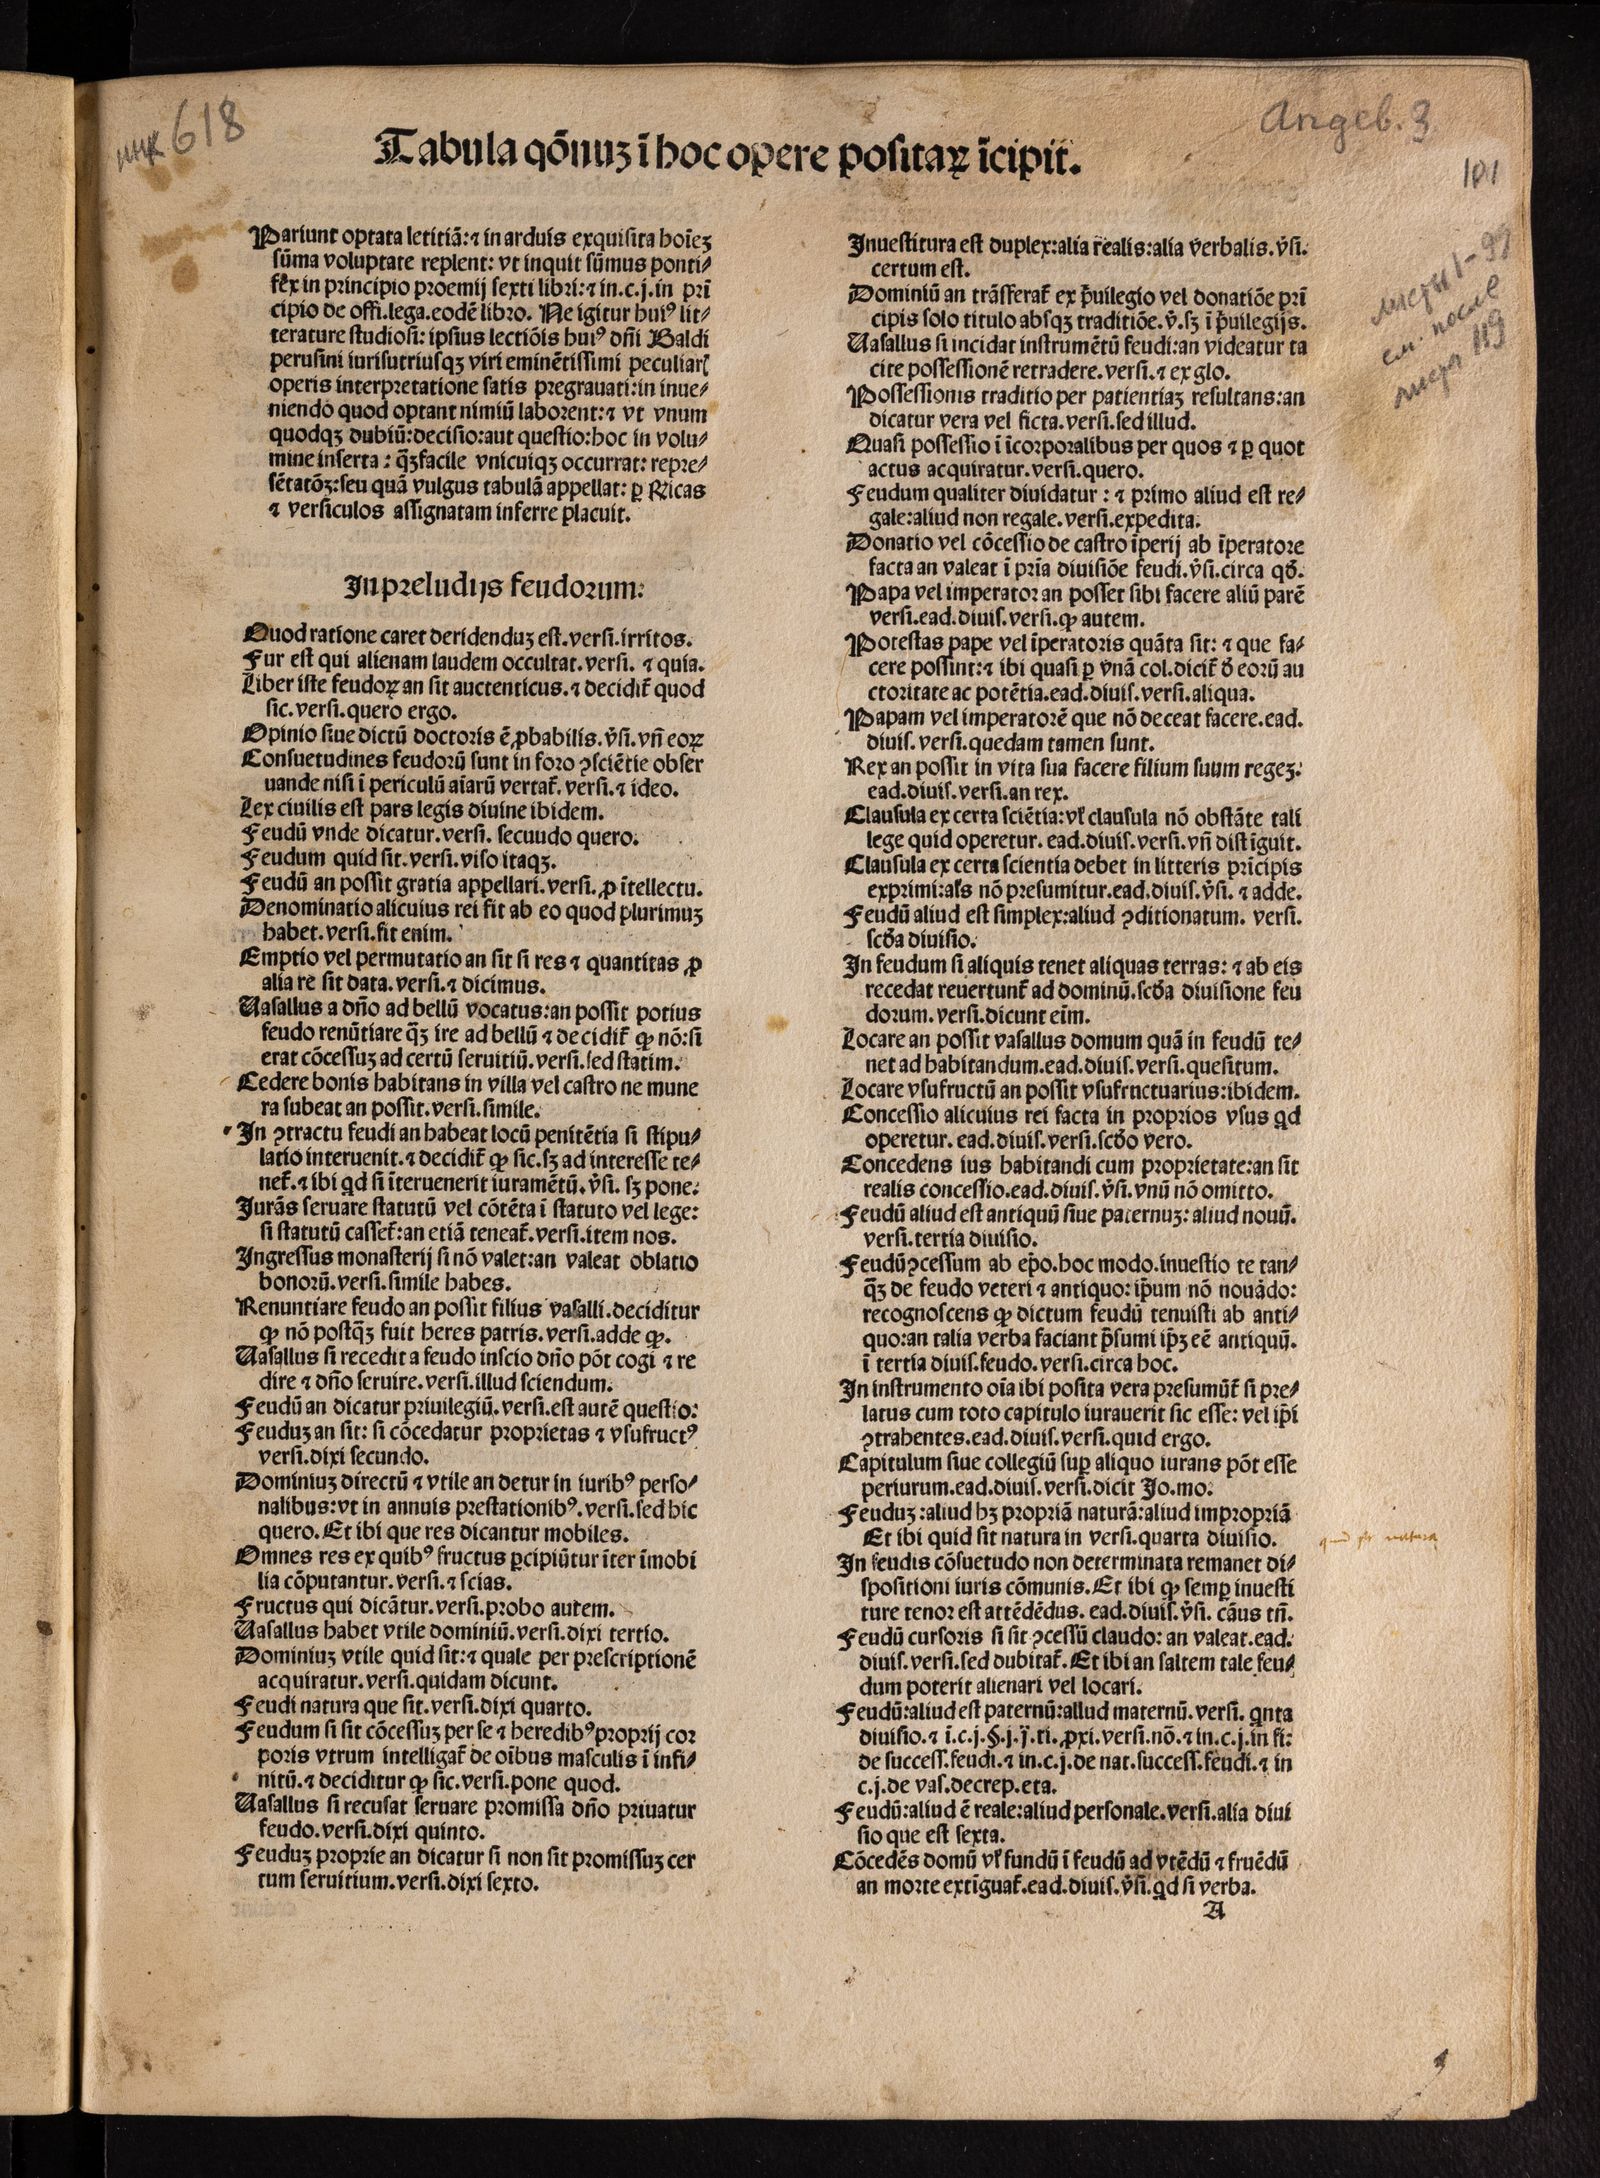 инк 618
Angeb. 3
101
листы 1-99
см. после
листа 119
Tabula qōnuʒ ī hoc opere positaꝝ īcipit.
Pariunt optata letitiā: ⁊ in arduis exquisita hoīeʒ
sūma voluptate replent: vt inquit sūmus ponti⸗
fex in principio proemij sexti libri: ⁊ in.c.j.in prī
cipio de offi.lega.eodē libro. Ne igitur huiꝰ lit⸗
terature studiosi: ipsius lectiōis huiꝰ dn̄i Baldi
perusini iurisutriusqʒ viri eminētissimi peculiarꝭ
operis interpretatione satis pregrauati: in inue⸗
niendo quod optant nimiū laborent: ⁊ vt vnum
quodqʒ dubiū: decisio: aut questio: hoc in volu⸗
mine inserta: q̄ʒfacile vnicuiqʒ occurrat: repre⸗
sētatōʒ: seu quā vulgus tabulā appellat: ꝑ Rꝛicas
⁊ versiculos assignatam inferre placuit.
In preludijs feudorum:
Quod ratione caret deridenduʒ est. versi. irritos.
Fur est qui alienam laudem occultat. versi. ⁊ quia.
Liber iste feudoꝝ an sit auctenticus. ⁊ decidit᷑ quod
sic. versi. quero ergo.
Opinio siue dictū doctoris ē ꝓbabilis. v̄si. vn̄ eoꝝ
Consuetudines feudorū sunt in foro ꝯsciētie obser
uande nisi ī periculū aīarū vertat᷑. versi. ⁊ ideo.
Lex ciuilis est pars legis diuine ibidem.
Feudū vnde dicatur. versi. secuudo quero.
Feudum quid sit. versi. viso itaqʒ.
Feudū an possit gratia appellari. versi. ꝓ ītellectu.
Denominatio alicuius rei fit ab eo quod plurimuʒ
habet. versi. fit enim.
Emptio vel permutatio an sit si res ⁊ quantitas ꝓ
alia re sit data. versi. ⁊ dicimus.
Uasallus a dn̄o ad bellū vocatus: an possit potius
feudo renūtiare q̄ʒ ire ad bellū ⁊ decidit᷑ ꝙ nō: si
erat cōcessuʒ ad certū seruitiū. versi. sed statim.
Cedere bonis habitans in villa vel castro ne mune
ra subeat an possit. versi. simile.
In ꝯtractu feudi an habeat locū penitētia si stipu⸗
latio interuenit. ⁊ decidit᷑ ꝙ sic. sʒ ad interesse te⸗
net᷑. ⁊ ibi qͥd si īteruenerit iuramētū. v̄si. sʒ pone.
Jurās seruare statutū vel cōtēta ī statuto vel lege:
si statutū casset᷑: an etiā teneat᷑. versi. item nos.
Ingressus monasterij si nō valet: an valeat oblatio
bonorū. versi. simile habes.
Renuntiare feudo an possit filius vasalli. deciditur
ꝙ nō postq̄ʒ fuit heres patris. versi. adde ꝙ.
Uasallus si recedit a feudo inscio dn̄o pōt cogi ⁊ re
dire ⁊ dn̄o seruire. versi. illud sciendum.
Feudū an dicatur priuilegiū. versi. est autē questio:
Feuduʒ an sit: si cōcedatur proprietas ⁊ vsufructꝰ
versi. dixi secundo.
Dominiuʒ directū ⁊ vtile an detur in iuribꝰ perso⸗
nalibus: vt in annuis prestationibꝰ. versi. sed hic
quero. Et ibi que res dicantur mobiles.
Omnes res ex quibꝰ fructus ꝑcipiūtur īter īmobi
lia cōputantur. versi. ⁊ scias.
Fructus qui dicātur. versi. probo autem.
Uasallus habet vtile dominiū. versi. dixi tertio.
Dominiuʒ vtile quid sit: ⁊ quale per prescriptionē
acquiratur. versi. quidam dicunt.
Feudi natura que sit. versi. dixi quarto.
Feudum si sit cōcessuʒ per se ⁊ heredibꝰ proprij cor
poris vtrum intelligat᷑ de oībus masculis ī infi⸗
nitū. ⁊ deciditur ꝙ sic. versi. pone quod.
Uasallus si recusat seruare promissa dn̄o priuatur
feudo. versi. dixi quinto.
Feuduʒ proprie an dicatur si non sit promissuʒ cer
tum seruitium. versi. dixi sexto.
Inuestitura est duplex: alia realis: alia verbalis. v̄si.
certum est.
Dominiū an trāsferat᷑ ex p̄uilegio vel donatiōe prī
cipis solo titulo absqʒ traditiōe. v̄. sʒ ī p̄uilegijs.
Uasallus si incidat instrumētū feudi: an videatur ta
cite possessionē retradere. versi. ⁊ ex glo.
Possessionis traditio per patientiaʒ resultans: an
dicatur vera vel ficta. versi. sed illud.
Quasi possessio ī īcorporalibus per quos ⁊ ꝑ quot
actus acquiratur. versi. quero.
Feudum qualiter diuidatur: ⁊ primo aliud est re⸗
gale: aliud non regale. versi. expedita.
Donatio vel cōcessio de castro īperij ab īperatore
facta an valeat ī prīa diuisiōe feudi. v̄si. circa qđ.
Papa vel imperator an posset sibi facere aliū parē
versi. ead. diuis. versi. ꝙ autem.
Potestas pape vel īperatoris quāta sit: ⁊ que fa⸗
cere possint: ⁊ ibi quasi ꝑ vnā col. dicit᷑ đ eorū au
ctoritate ac potētia. ead. diuis. versi. aliqua.
Papam vel imperatorē que nō deceat facere. ead.
diuis. versi. quedam tamen sunt.
Rex an possit in vita sua facere filium suum regeʒ.
ead. diuis. versi. an rex.
Clausula ex certa sciētia: vl̓ clausula nō obstāte tali
lege quid operetur. ead. diuis. versi. vn̄ distīguit.
Clausula ex certa scientia debet in litteris prīcipis
exprimi: al̓s nō presumitur. ead. diuis. v̄si. ⁊ adde.
Feudū aliud est simplex: aliud ꝯditionatum. versi.
scđa diuisio.
In feudum si aliquis tenet aliquas terras: ⁊ ab eis
recedat reuertunt᷑ ad dominū. scđa diuisione feu
dorum. versi. dicunt eīm.
Locare an possit vasallus domum quā in feudū te⸗
net ad habitandum. ead. diuis. versi. quesitum.
Locare vsufructū an possit vsufrnctuarius: ibidem.
Concessio alicuius rei facta in proprios vsus qͥd
operetur. ead. diuis. versi. scđo vero.
Concedens ius habitandi cum proprietate: an sit
realis concessio. ead. diuis. v̄si. vnū nō omitto.
Feudū aliud est antiquū siue paternuʒ: aliud nouū.
versi. tertia diuisio.
Feudū ꝯcessum ab ep̄o. hoc modo. inuestio te tan⸗
q̄ʒ de feudo veteri ⁊ antiquo: ip̄um nō nouādo:
recognoscens ꝙ dictum feudū tenuisti ab anti⸗
quo: an talia verba faciant p̄sumi ip̄ʒ eē antiquū.
ī tertia diuis. feudo. versi. circa hoc.
In instrumento oīa ibi posita vera presumūt᷑ si pre⸗
latus cum toto capitulo iurauerit sic esse: vel ip̄i
ꝯtrahentes. ead. diuis. versi. quid ergo.
Capitulum siue collegiū suꝑ aliquo iurans pōt esse
periurum. ead. diuis. versi. dicit Jo. mo.
Feuduʒ: aliud hʒ propriā naturā: aliud impropriā
Et ibi quid sit natura in versi. quarta diuisio.
quid sit natura
In feudis cōsuetudo non determinata remanet di⸗
spositioni iuris cōmunis. Et ibi ꝙ semꝑ inuesti
ture tenor est attēdēdus. ead. diuis. v̄si. cāus tn̄.
Feudū cursoris si sit ꝯcessū claudo: an valeat. ead.
diuis. versi. sed dubitat᷑. Et ibi an saltem tale feu⸗
dum poterit alienari vel locari.
Feudū: aliud est paternū: allud maternū. versi. qͥnta
diuisio. ⁊ ī.c.j.§.j.ï.ti. ꝓxi. versi. nō. ⁊ in.c.j.in fi:
de success. feudi. ⁊ in.c.j.de nat. success. feudi. ⁊ in
c.j.de vas. decrep. eta.
Feudū: aliud ē reale: aliud personale. versi. alia diui
sio que est sexta.
Cōcedēs domū vl̓ fundū ī feudū ad vtēdū ⁊ fruēdū
an morte extīguat᷑. ead. diuis. v̄si. qͥd si verba.
A